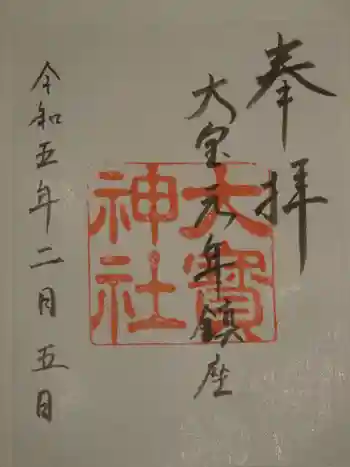 奉拝
大宝元年鎮座
大寳神社
令和五年二月五日